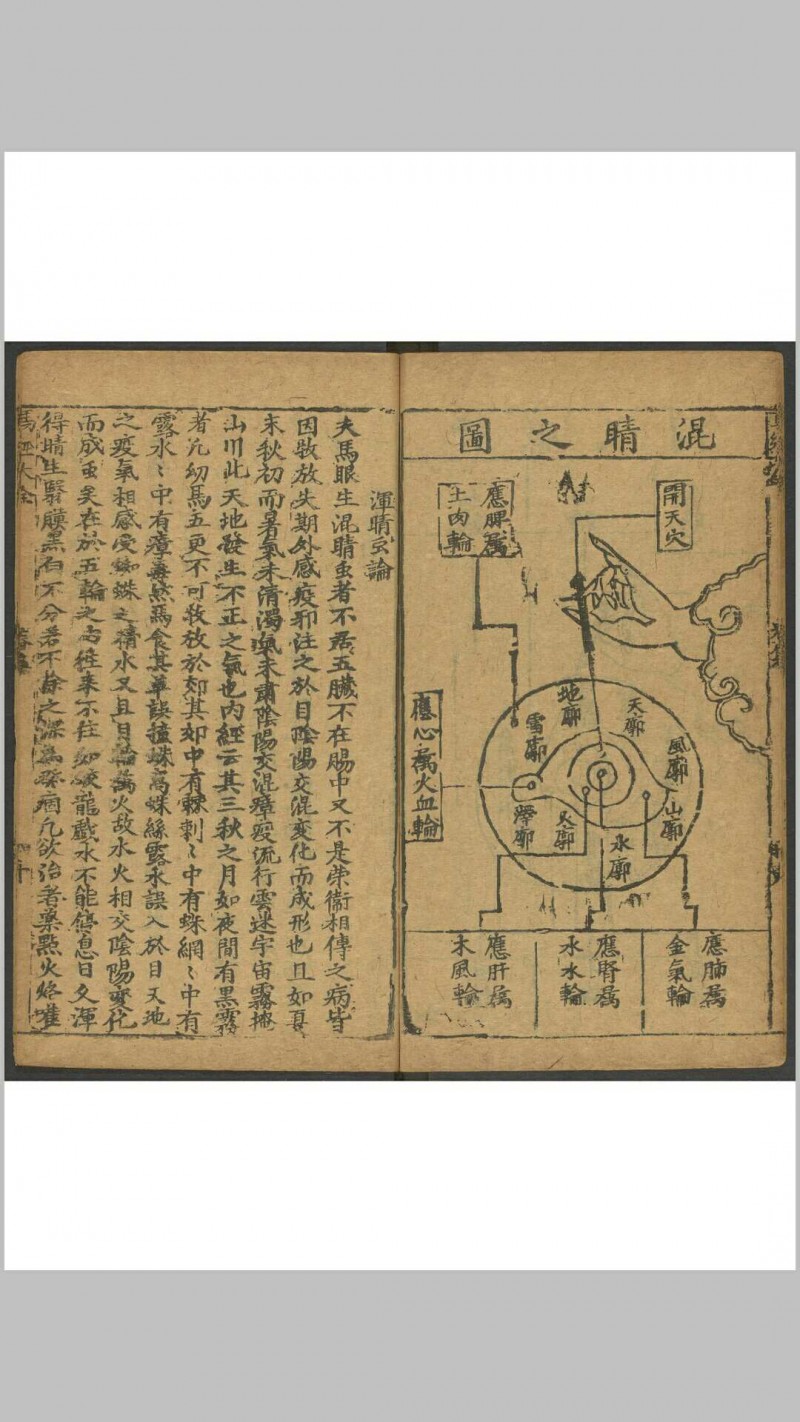 混睛之圖
開天穴
應脾爲
土肉輪
天廓
地廓
風廓
雪廓
山廓
澤廓
火廓
水廓
應心爲火血輪
應肺爲
金氣輪
應腎爲
水水輪
應肝爲
木風輪
渾睛虫論
夫馬眼生混睛虫者不居五臓不在腸中又不是榮衛相傳之病皆
因牧放失期外感疫邪注之於目陰陽交混変化而成形也且如夏
末秋初而暑氣未清濁氣未肅陰陽交混瘴疫流行雲迷宇宙霧掩
山川此天地發生不正之氣也内經云其三秋之月如夜間有黒霧
者凢幼馬五更不可牧放於郊其郊中有棘刺〻中有蛛網〻中有
露水〻中有瘴毒然馬食其草誤撞蛛窩蛛絲露水誤入於目天地
之疫氣相感受蜘蛛之精水又且目輪爲火故水火相交陰陽変化
而成虫矣在於五輪之内徃来不住如蛟龍戲水不能停息日久渾
得睛生翳膜黒白不分若不除之深爲癈痼凢欲治者藥點火烙难
馬經大全